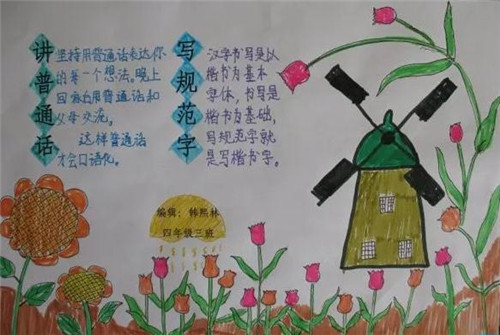 讲普通话
坚持用普通话表达你
的每一个想法。晚上
回家后用普通话和
父母交流。
这样普通话
才会口语化。
写规范字
汉字书写是以
楷书为基本
字体，书写是
楷书为基础，
写规范字就
是写楷书字。
编辑：韩熙林
四年级三班